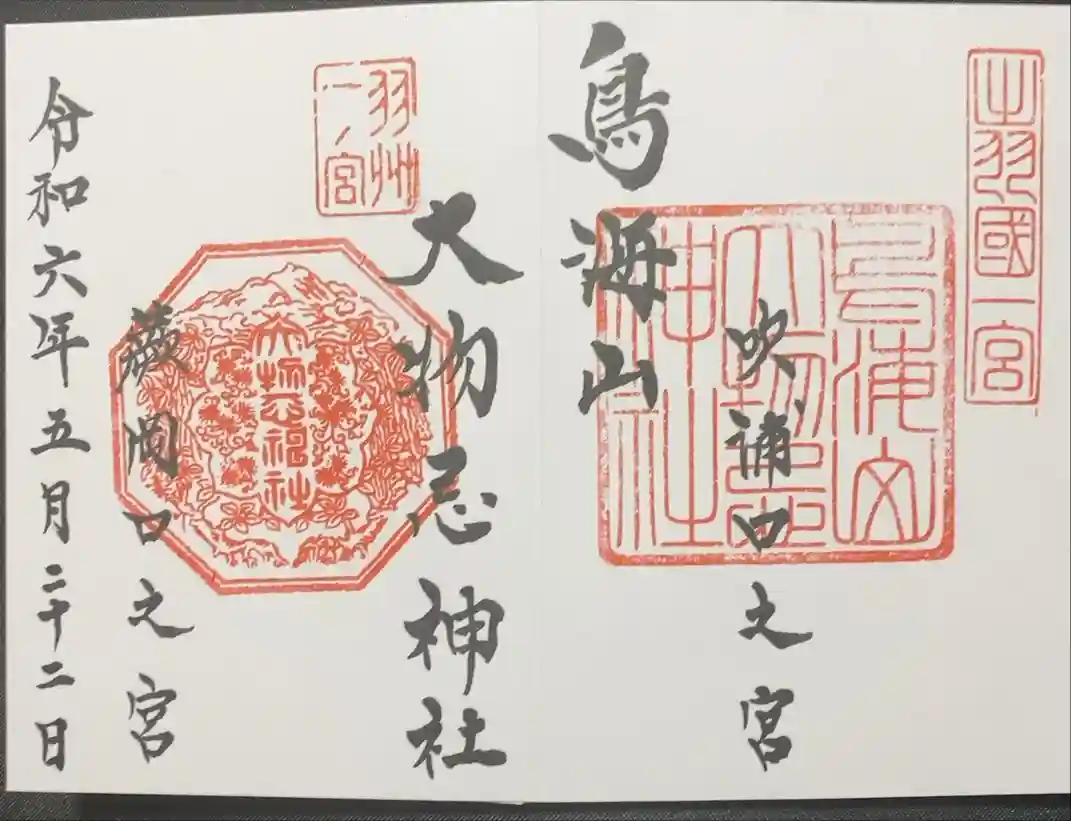 出羽國一宮
吹浦口之宮
鳥海山
鳥海山大物忌神社
大物忌神社
羽州一ノ宮
大物忌神社
蕨岡口之宮
令和六年五月二十二日